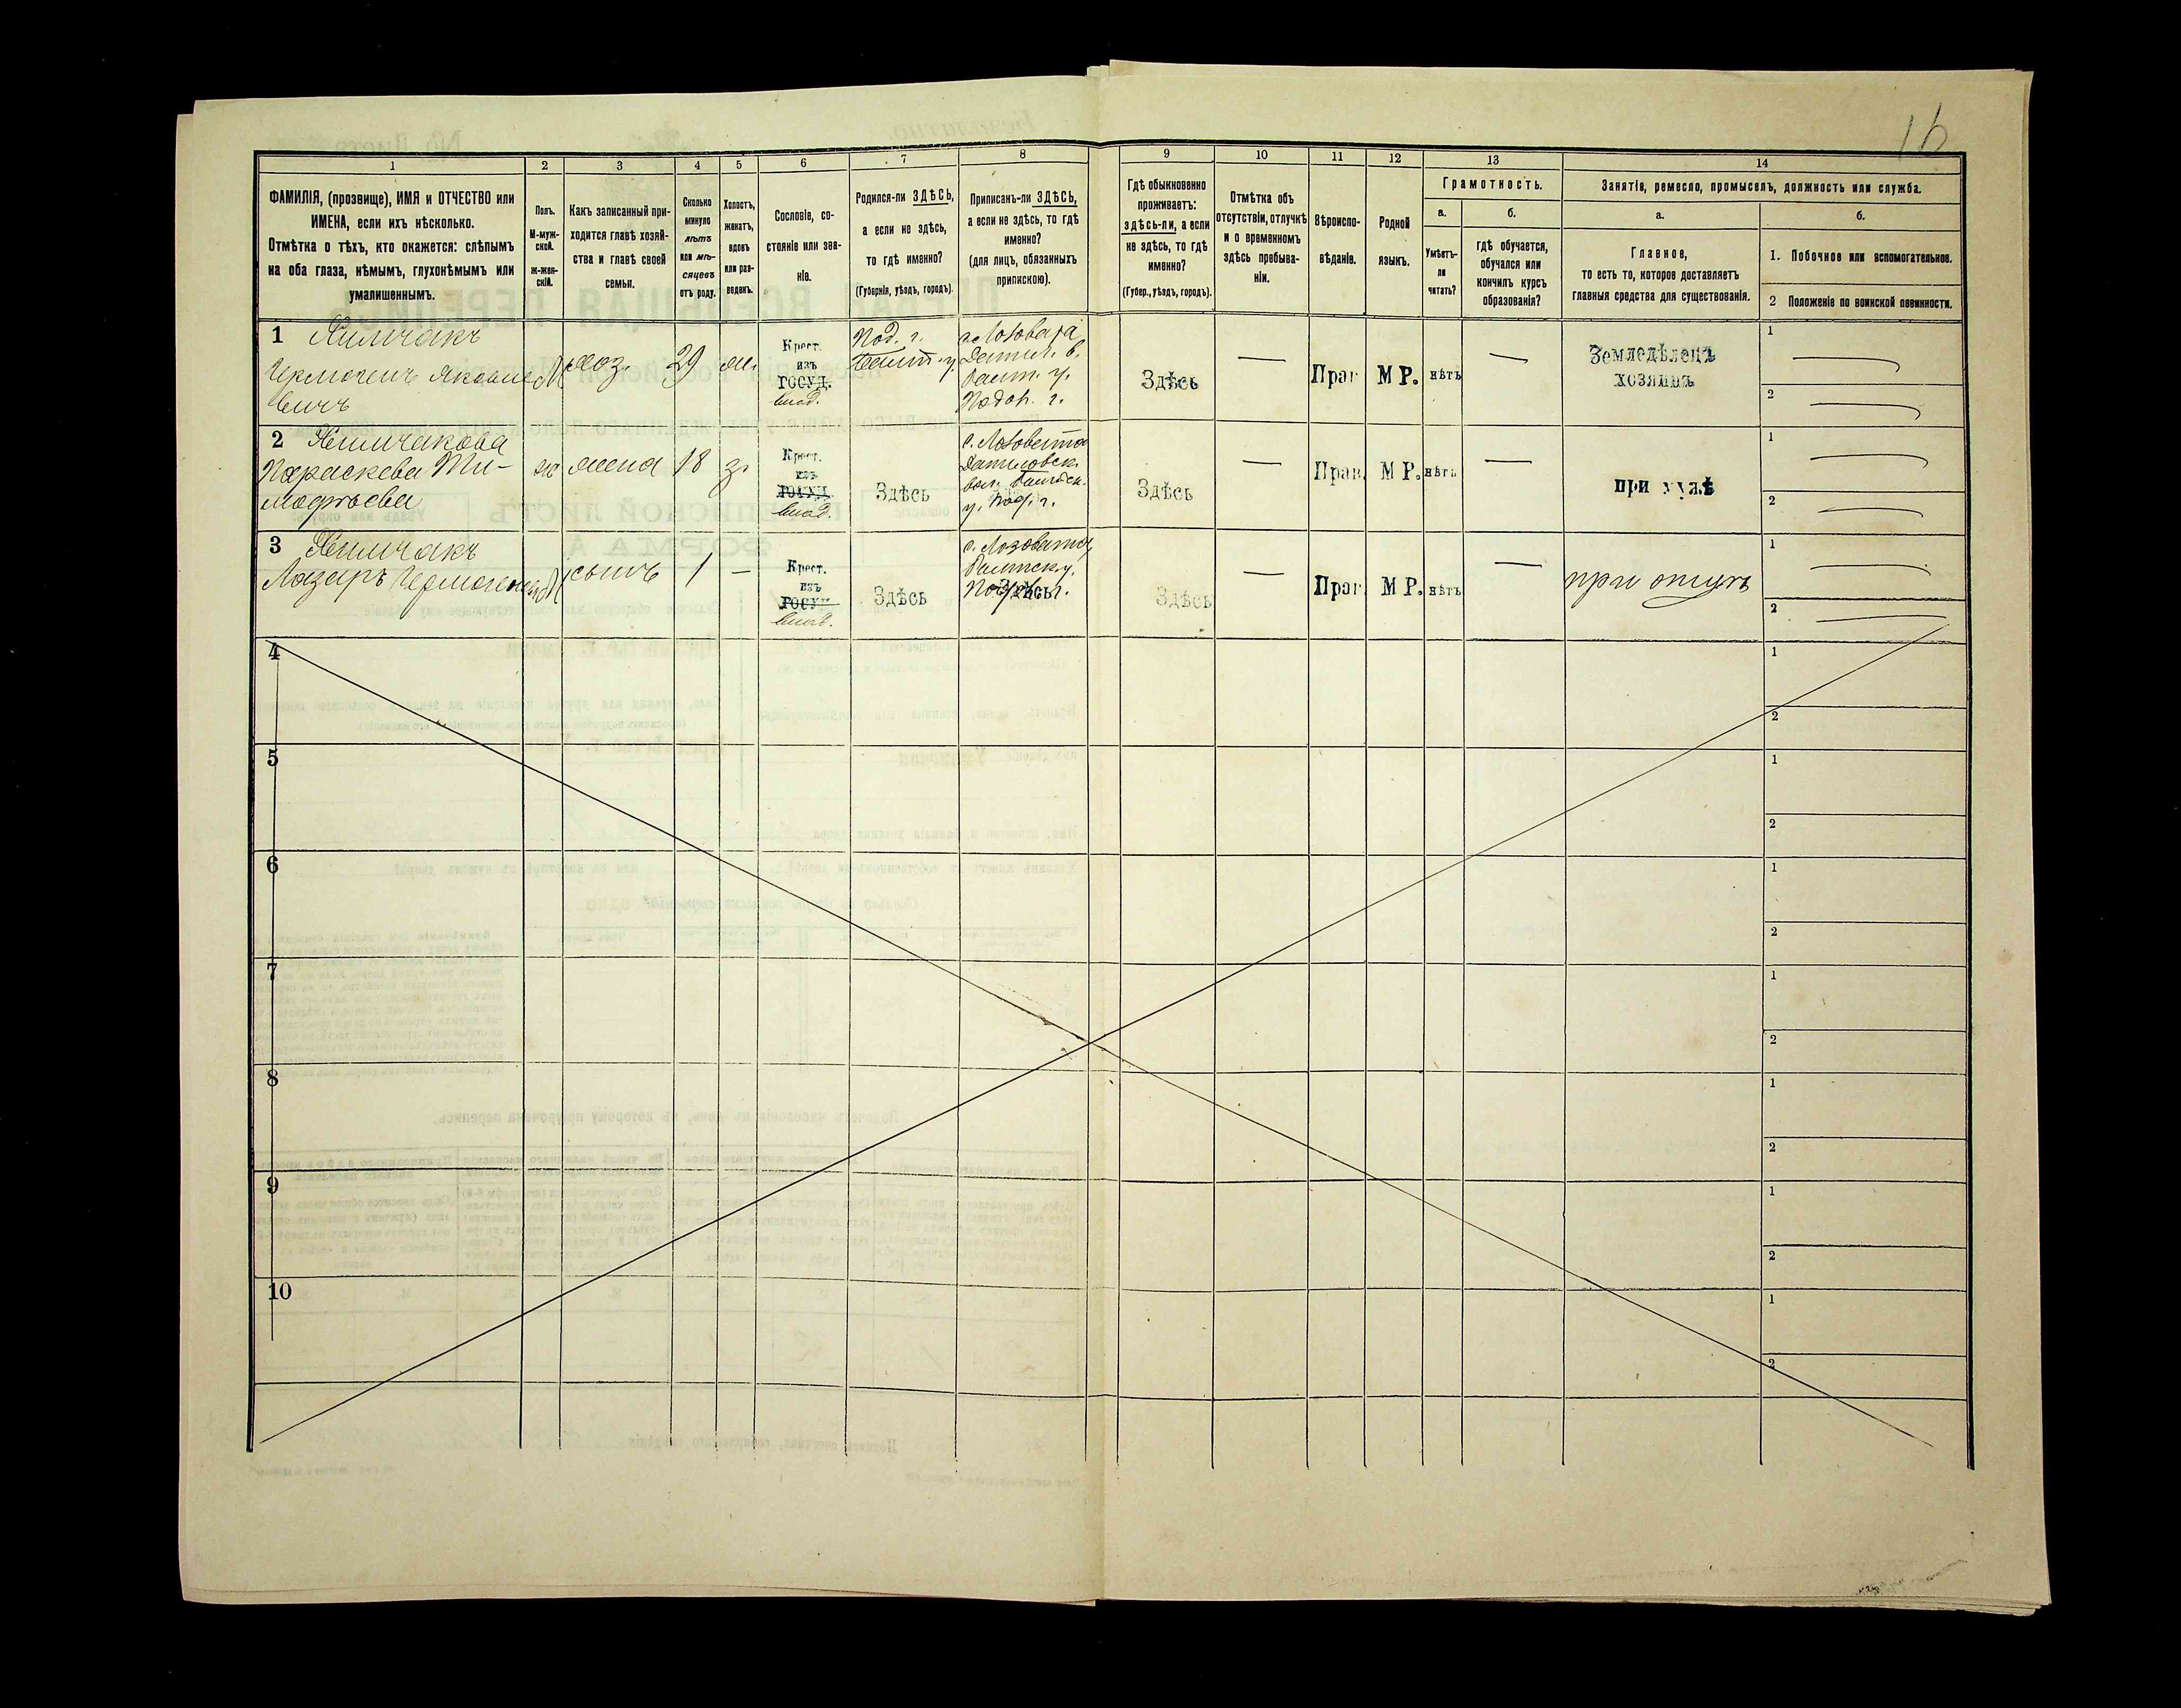 16
1 2 3 4 5 6 7 8 9 10 11 12 13 14
ФАМИЛІЯ, (прозвище), ИМЯ и ОТЧЕСТВО или
ИМЕНА, если ихъ нѣсколько.
Отмѣтка о тѣхъ, кто окажется: слѣпымъ
на оба глаза, нѣмымъ, глухонѣмымъ или
умалишеннымъ.
Полъ.
М-муж-
ской.
ж-жен-
скій.
Какъ записанный при-
ходится главѣ хозяй-
ства и главѣ своей
семьи.
Сколько
минуло
лѣтъ
или мѣ-
сяцевъ
отъ роду.
Холостъ,
женатъ,
вдовъ
или раз-
веденъ.
Сословіе, со-
стояніе или зва-
ніе.
Родился-ли ЗДѢСЬ,
а если не здѣсь,
то гдѣ именно?
(Губернія, уѣздъ, городъ).
Приписанъ-ли ЗДѢСЬ,
а если не здѣсь, то гдѣ
именно?
(для лицъ, обязанныхъ
припискою).
Гдѣ обыкновенно
проживаетъ:
здѣсь-ли, а если
не здѣсь, то гдѣ
именно?
(Губер., уѣздъ, городъ).
Отмѣтка объ
отсутствіи, отлучкѣ
и о временномъ
здѣсь пребыва-
ніи.
Вѣроиспо-
вѣданіе.
Родной
языкъ.
Грамотность.
а.
Умѣетъ-
ли
читать?
б.
гдѣ обучается,
обучался или
кончилъ курсъ
образованія?
Занятіе, ремесло, промыселъ, должность или служба.
а.
Главное,
то есть то, которое доставляетъ
главныя средства для существованія.
б.
1. Побочное или вспомогательное.
2 Положеніе по воинской повинности.
1 Химчакъ
Гермогенъ Яковле
вичъ
М
хоз.
29
ж.
Крест.
изъ
ГОСУД.
влад.
Под. г.
Балт. у.
с. Лозовата
Данил. в.
Балт. у.
Подол. г.
Здѣсь
—
Прав
МР.
нѣтъ
—
Земледѣлецъ
хозяинъ
1
2
2 Химчакова
Параскева Ти-
мофѣева
ж
жена
18
з.
Крест.
изъ
ГОСУД.
влад.
Здѣсь
с. Лозоватой
Даниловск.
вол. Балтск.
у. Под. г.
Здѣсь
—
Прав.
МР.
нѣтъ
—
при мужѣ
1
2
3 Химчакъ
Лазарь Гермогенов
М
сынъ
1
—
Крест.
изъ
ГОСУД.
влад.
Здѣсь
с. Лозоватой
Балтск у.
Под. г.
Здѣсь
Здѣсь
—
Прав
МР.
нѣтъ
—
при отцѣ
1
2
4
1
2
5
1
2
6
1
2
7
1
2
8
1
2
9
1
2
10
1
2